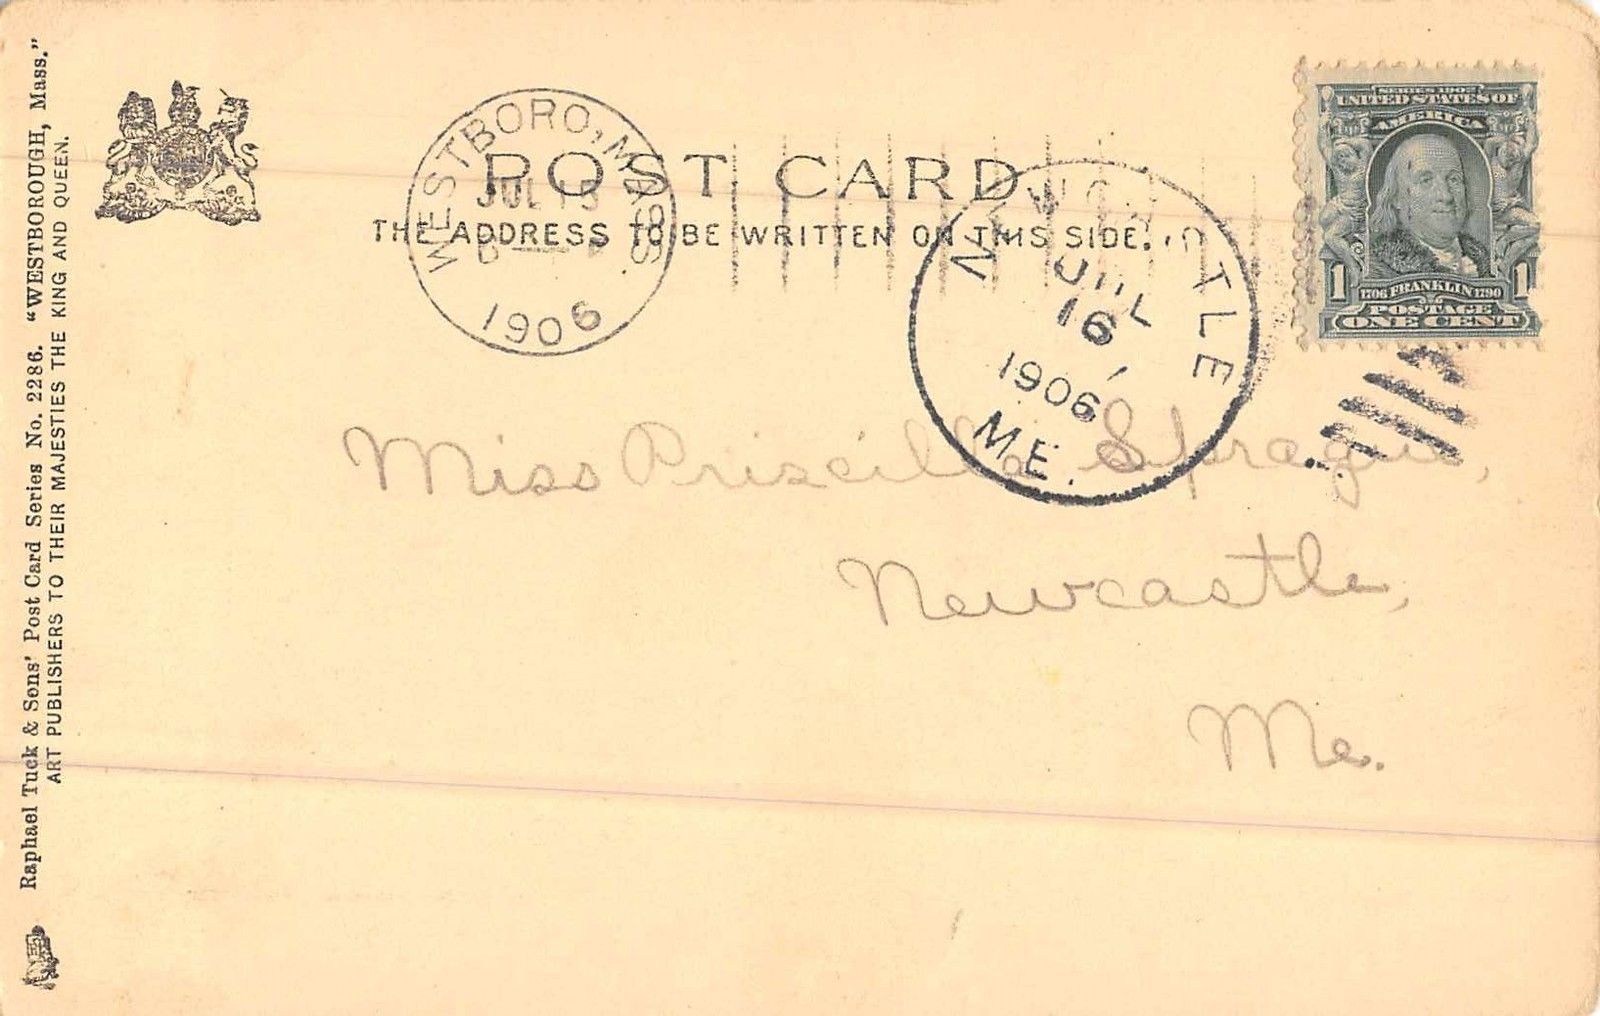 Raphael Tuck & Sons' Post Card Series No. 2286. "WESTBOROUGH, Mass."
ART PUBLISHERS TO THEIR MAJESTIES THE KING AND QUEEN.
POST CARD
THE ADDRESS TO BE WRITTEN ON THIS SIDE.
WESTBORO, MASS
JUL 15
1906
NEWCASTLE
JUL
16
1906
ME.
SERIES 1902
UNITED STATES OF
AMERICA
1 1
1706 FRANKLIN 1790
POSTAGE
ONE CENT
Miss Priscilla Sprague,
Newcastle,
Me.